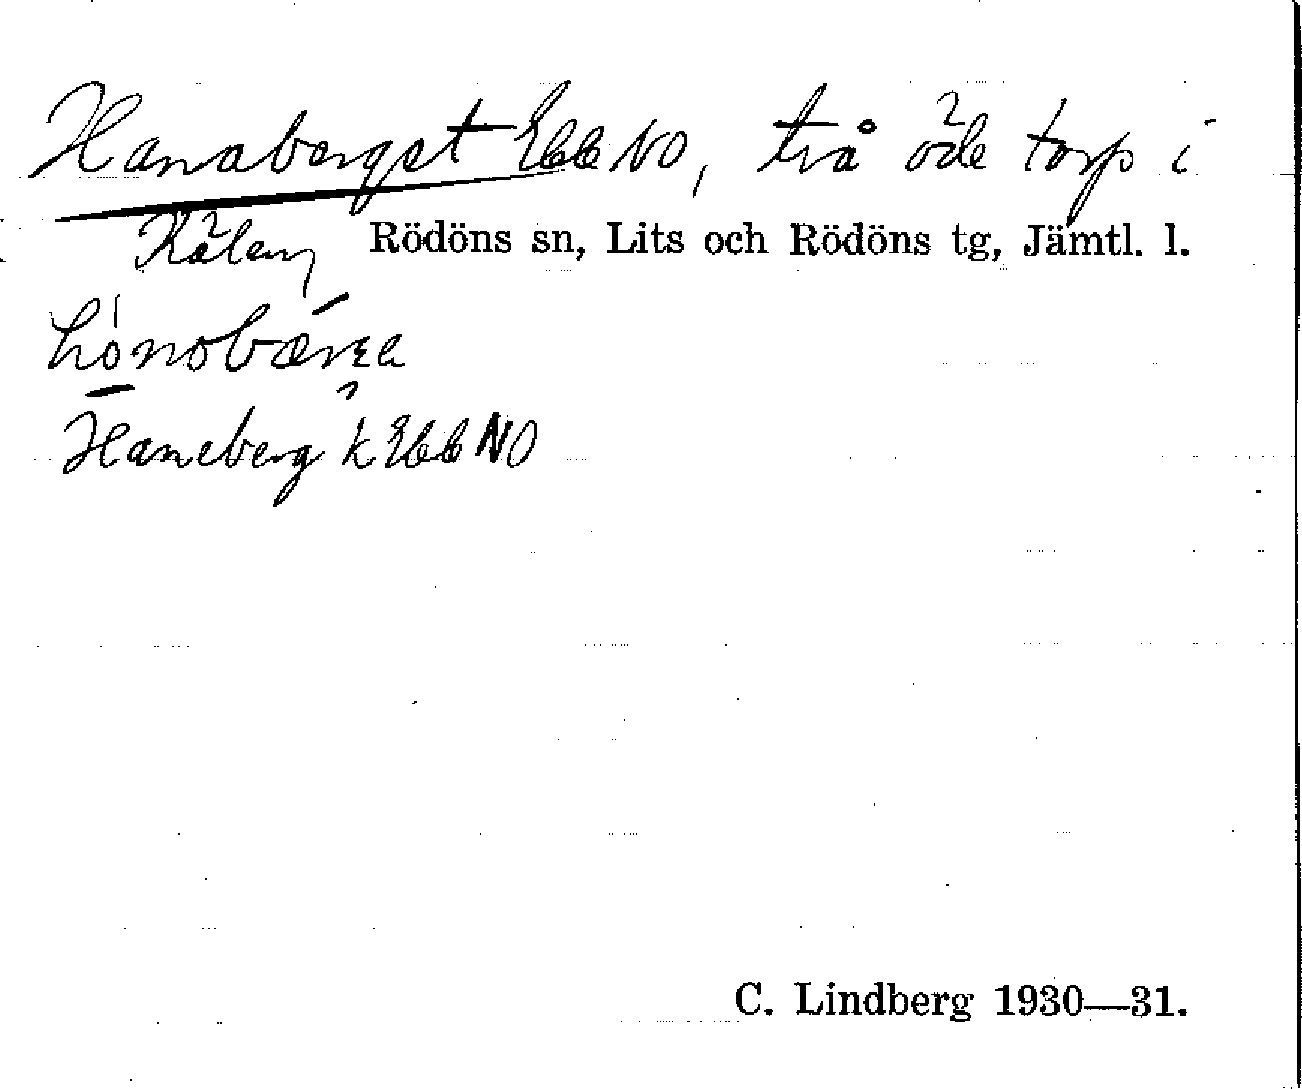 Hanaberget Ebb NO, två öde torp i
Kälen, Rödöns sn, Lits och Rödöns tg, Jämtl. l.
Haneberg k Ebb NO
C. Lindberg 1930—31.